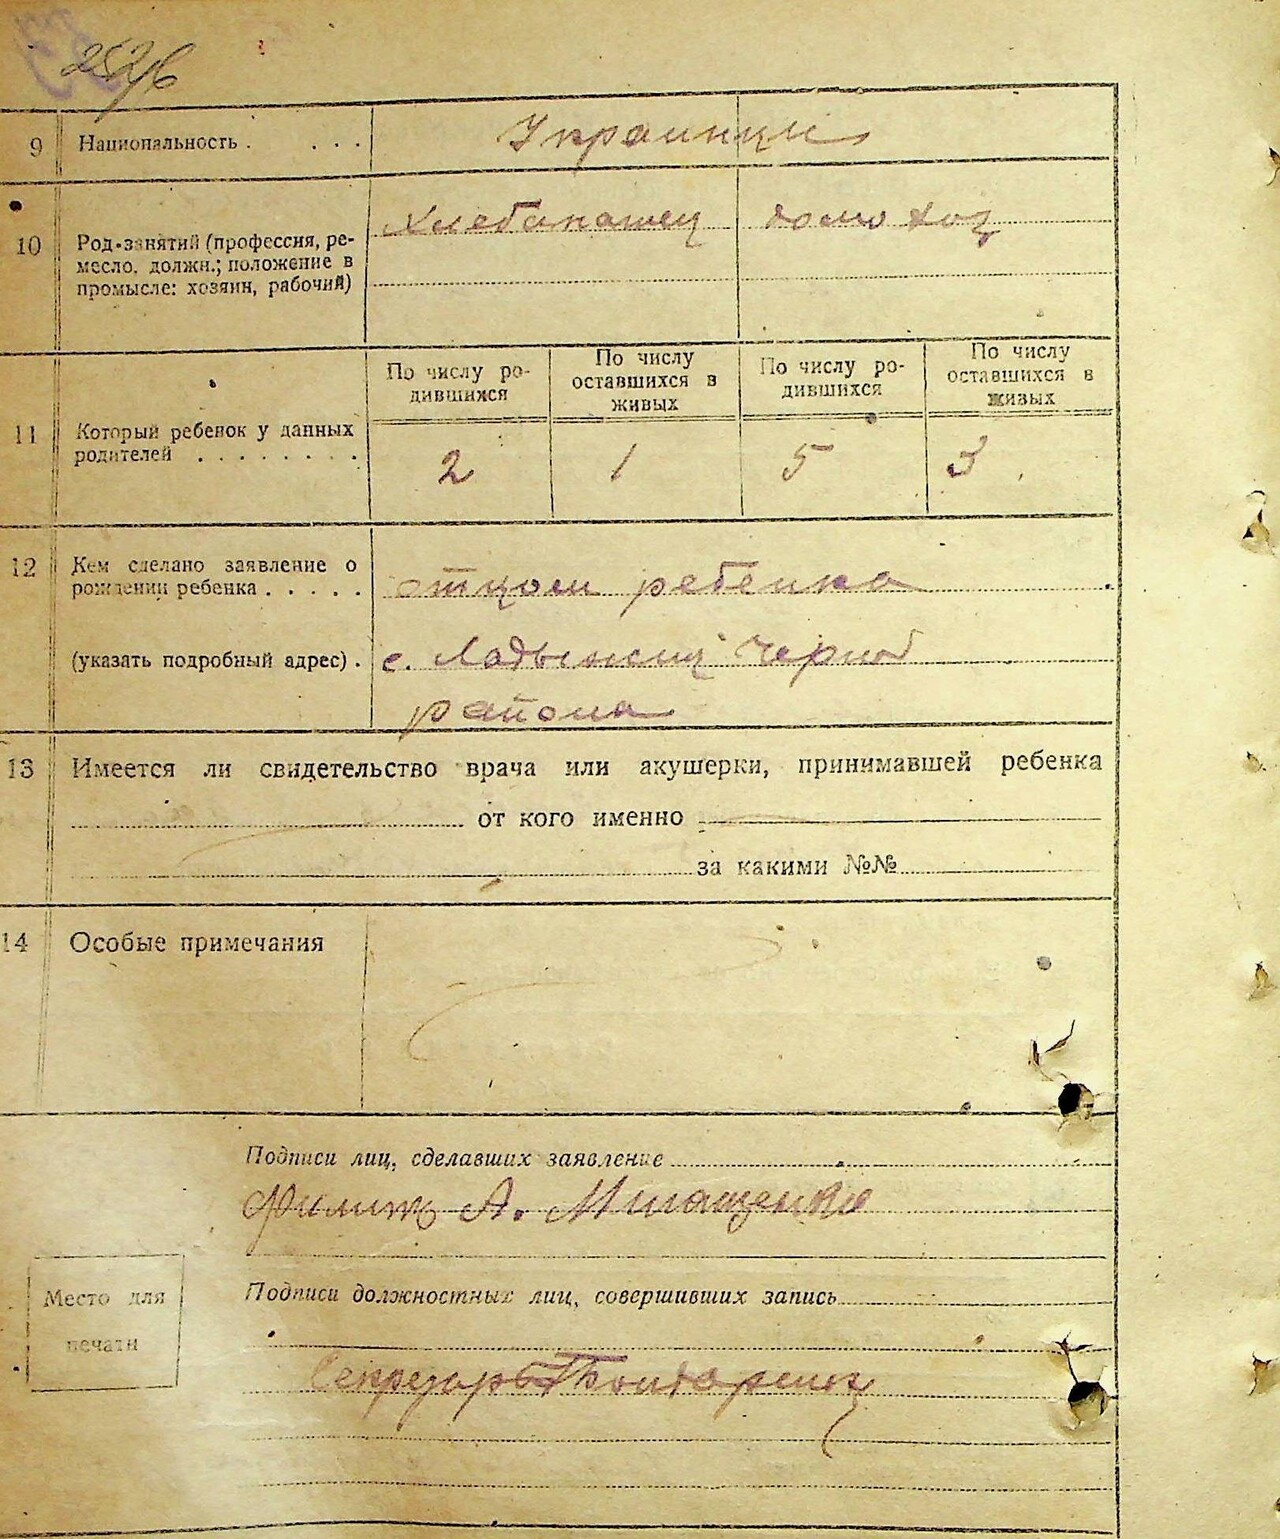 252/6
9 Национальность . . . . Украинцы
10 Род-занятий (профессия, ре-
месло, должн.; положение в
промысле: хозяин, рабочий)
Хлебапашец домохоз
По числу ро-
дившихся
По числу
оставшихся в
живых
По числу ро-
дившихся
По числу
оставшихся в
живых
11 Который ребенок у данных
родителей . . . . . . . .
2 1 5 3
12 Кем сделано заявление о
рождении ребенка . . . . .
отцом ребенка
(указать подробный адрес) . с. Ладыжичи Черноб
района
13 Имеется ли свидетельство врача или акушерки, принимавшей ребенка
от кого именно
за какими №№
14 Особые примечания
Подписи лиц, сделавших заявление
Филипп А.
Место для
печати
Подписи должностных лиц, совершивших запись
Секретарь